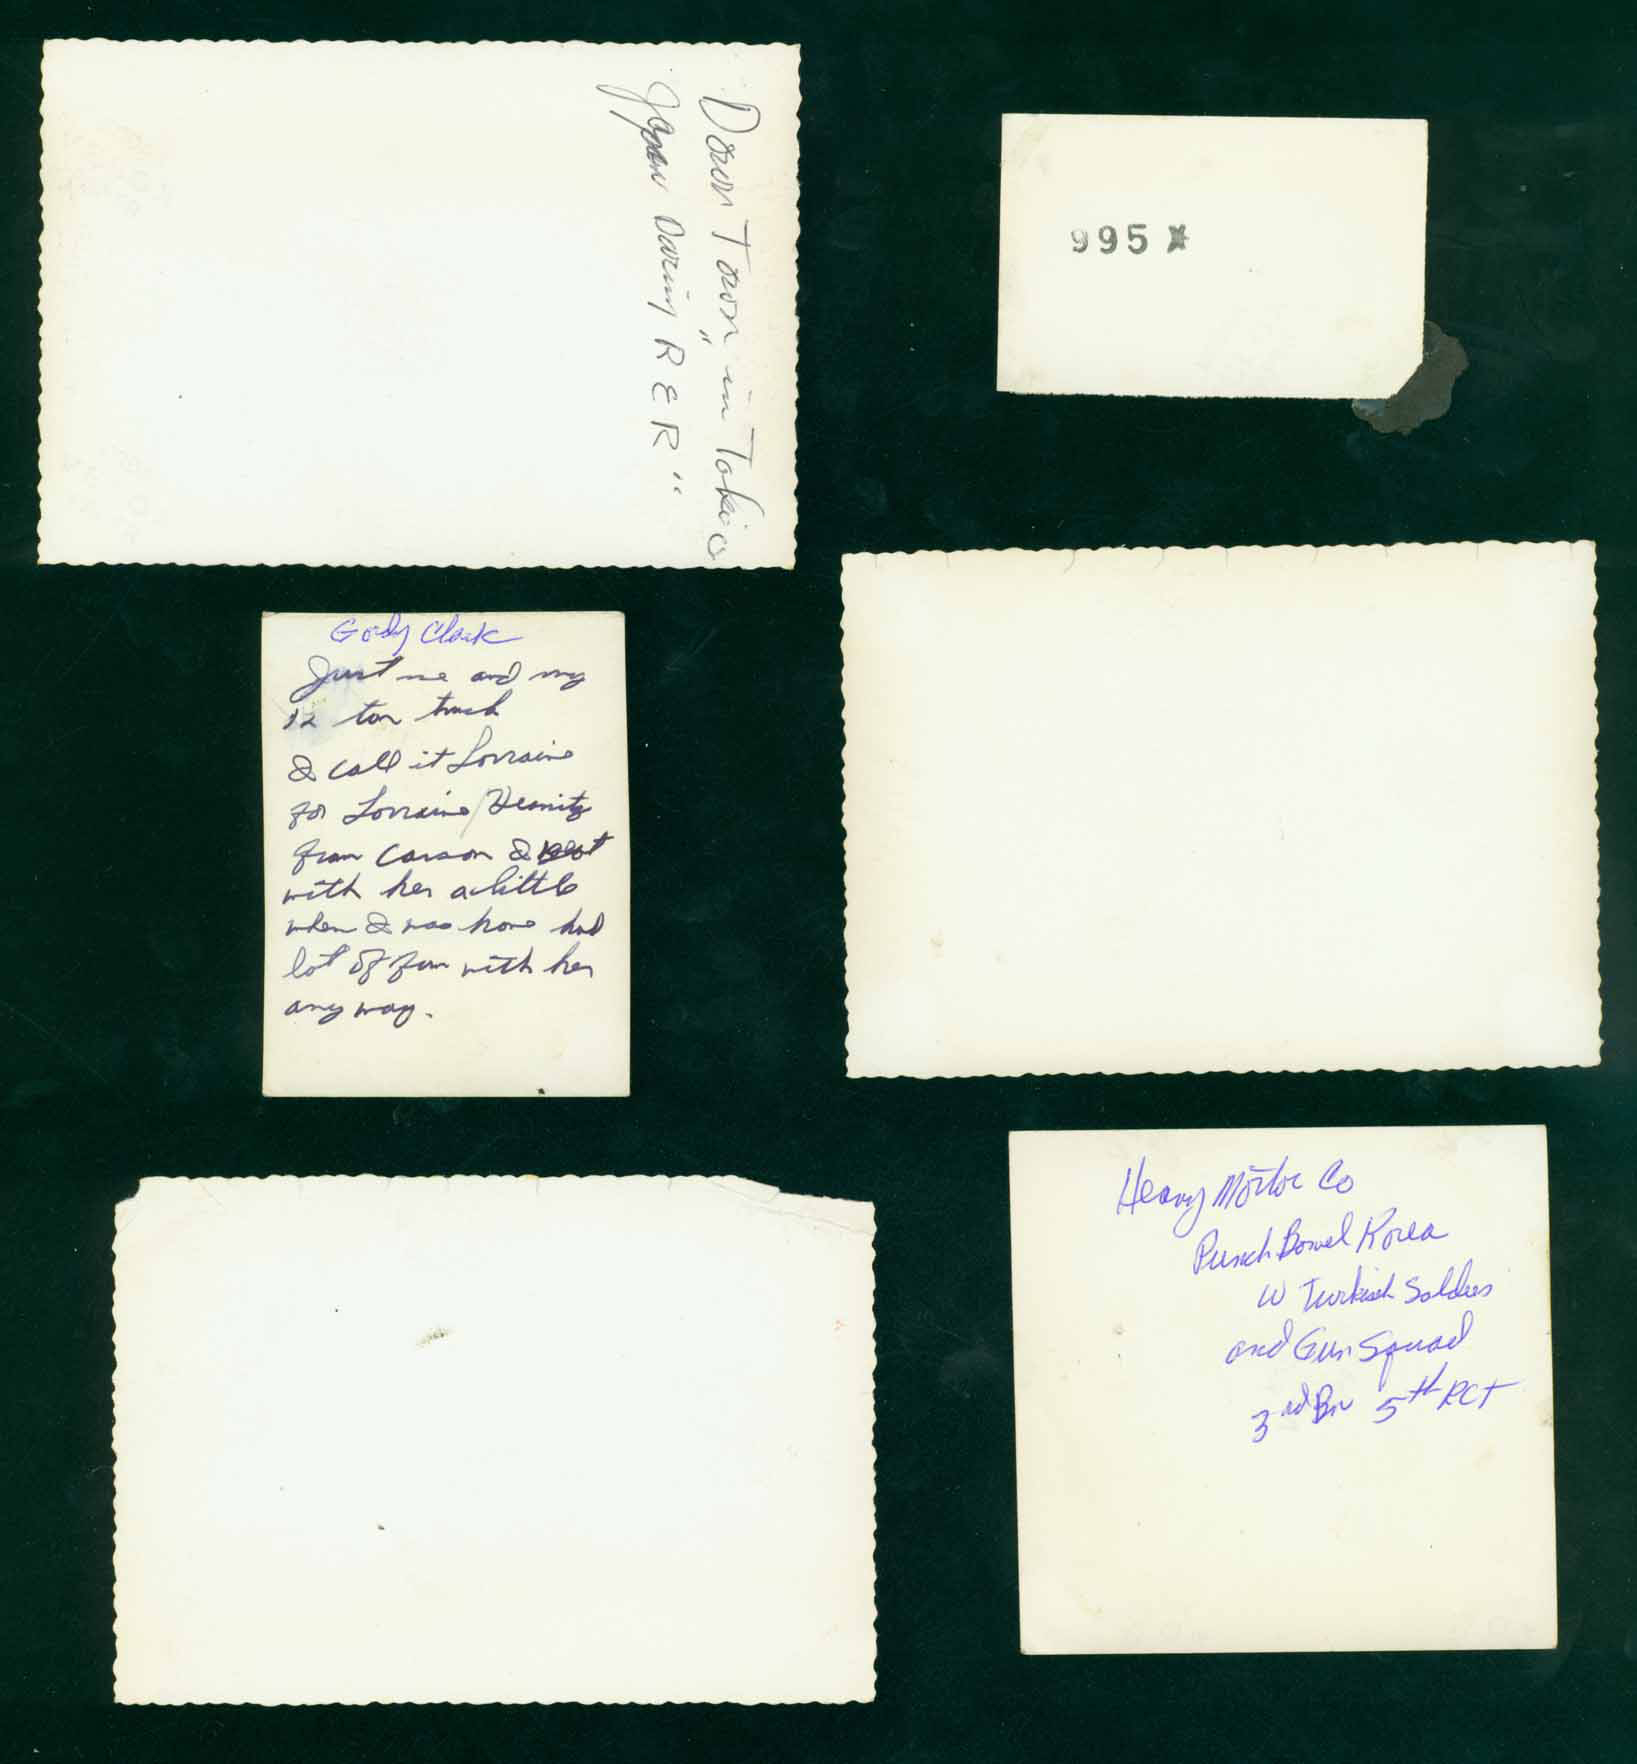 Down Town in Tokio
Japan During R E R "
995
Gordy Clark
Just me and my
12 ton truck
I call it Lorraine
for Lorraine
from Carson I went
with her a little
when I was home had
lot of fun with her
any way.
Heavy Mortor Co
Punch Bowel Korea
W Turkish Soldies
and Gun Squad
3rd Bn 5th RCT